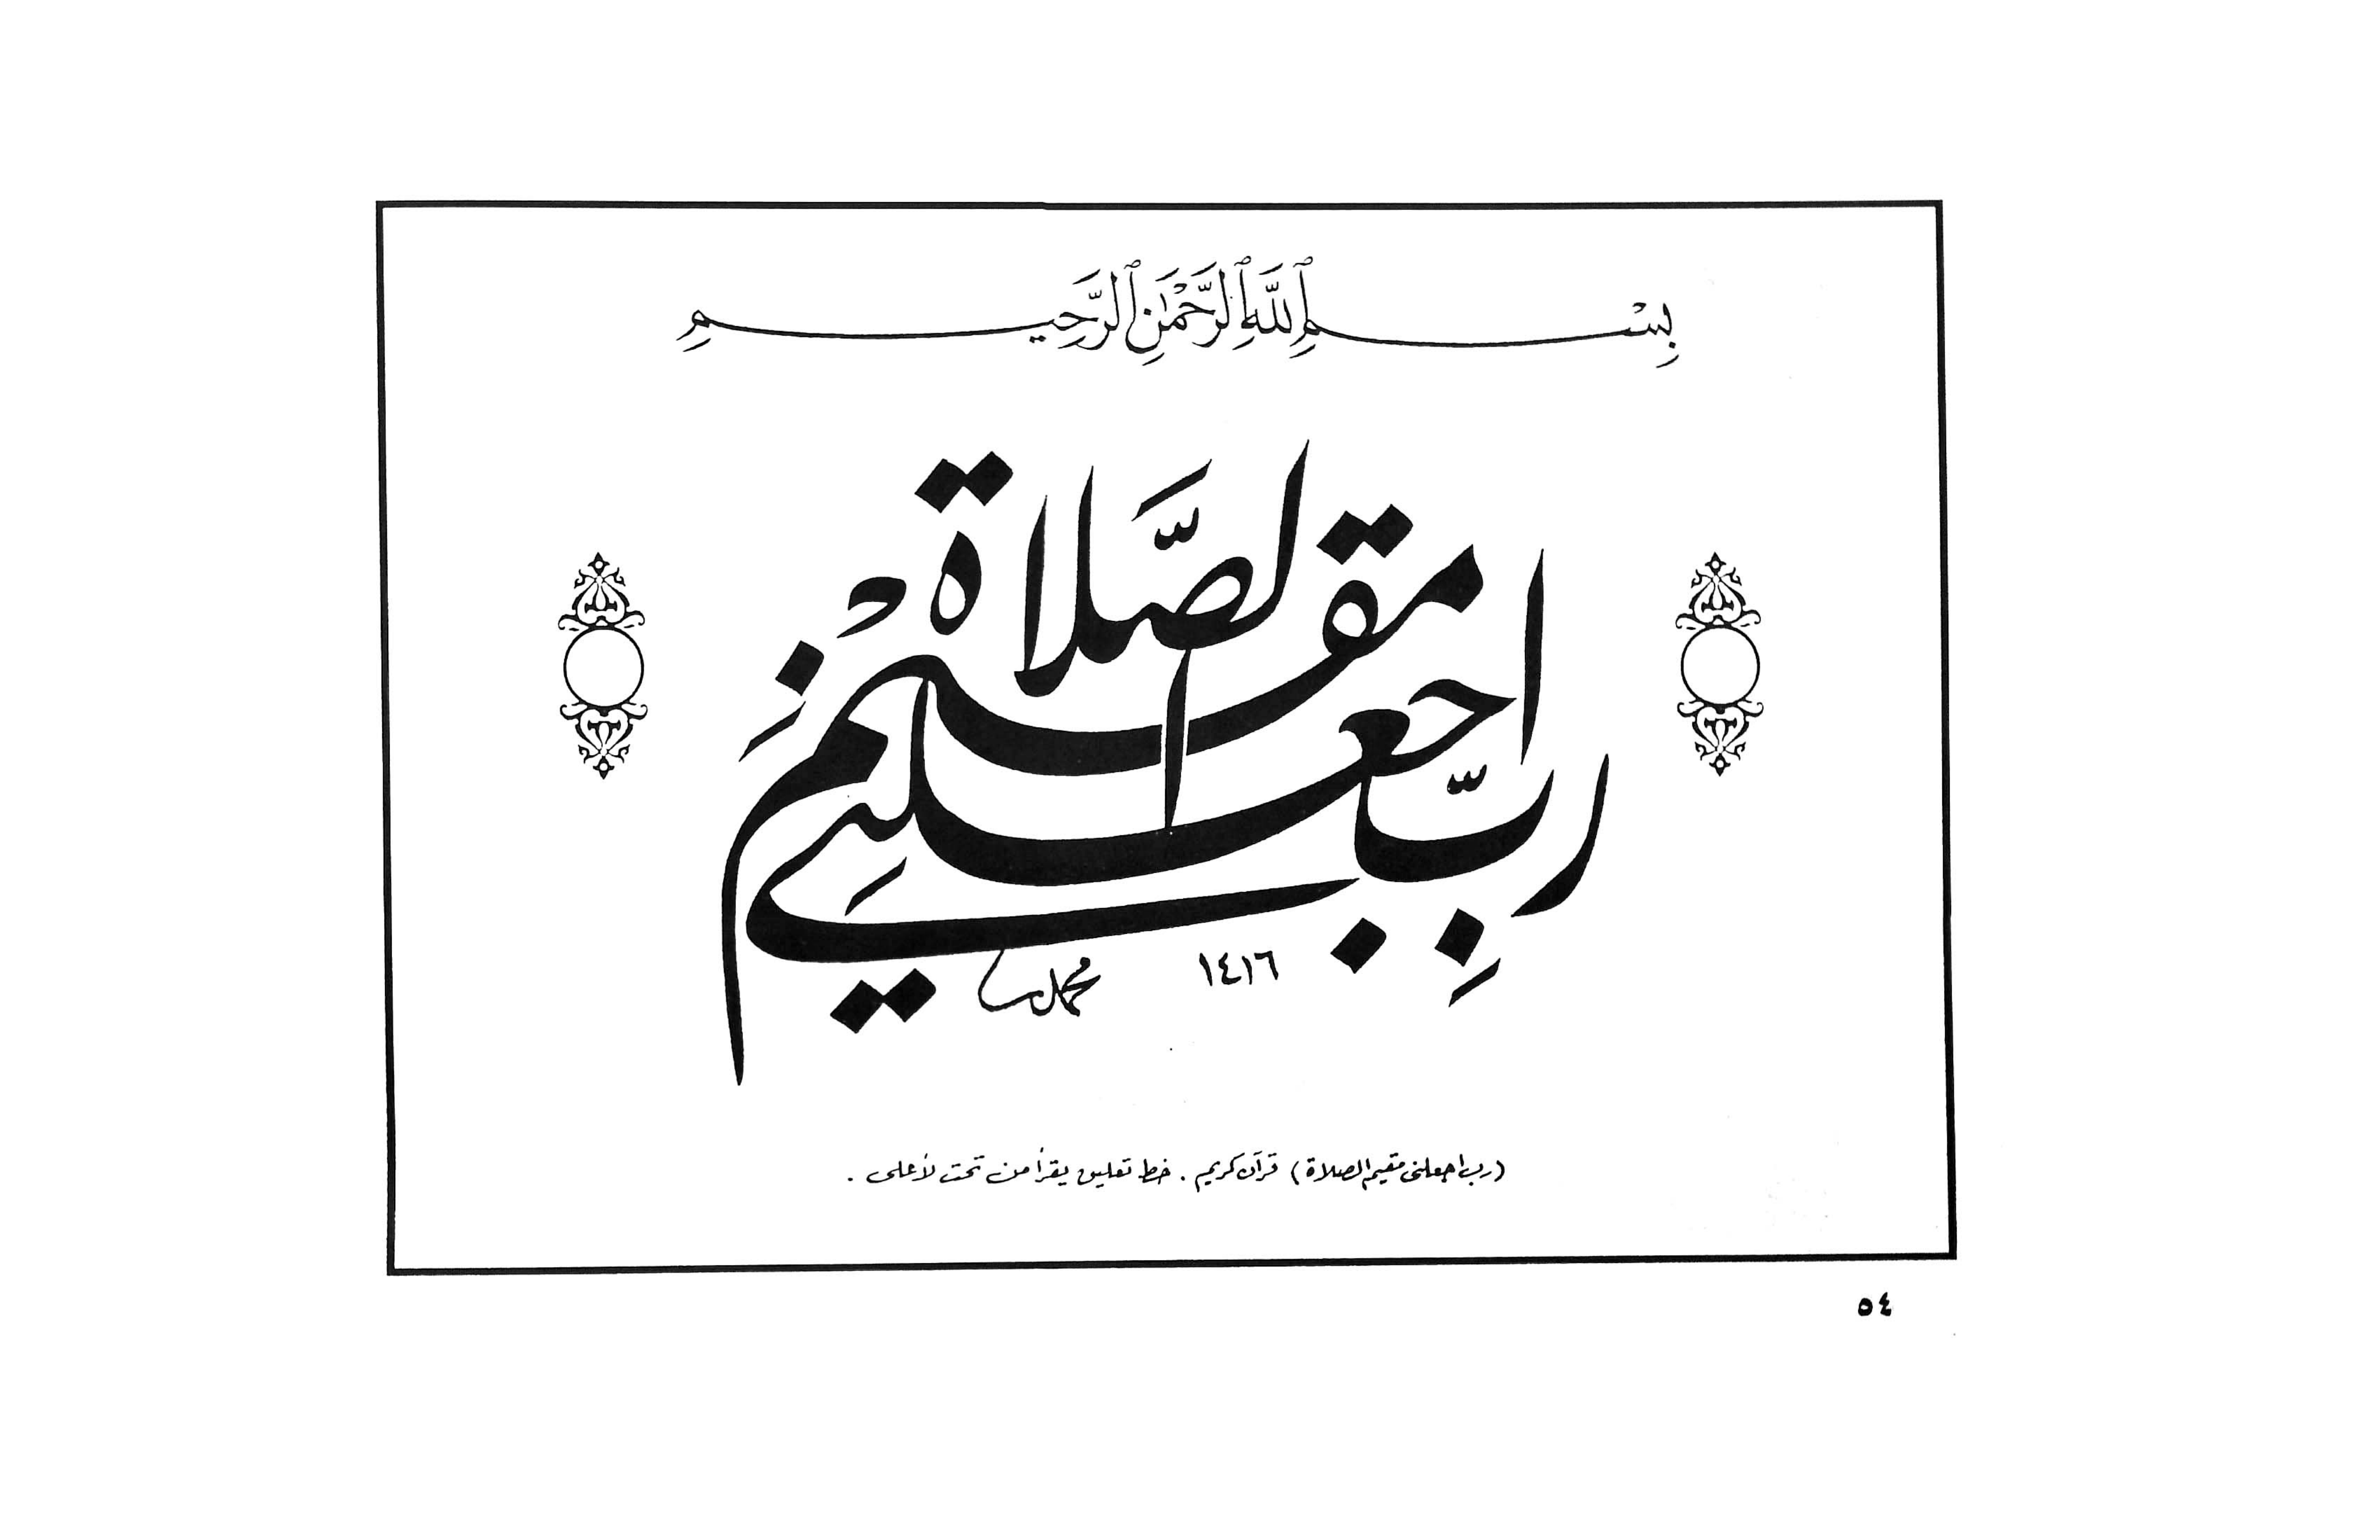 بِسْمِ ٱللَّهِ ٱلرَّحْمَٰنِ ٱلرَّحِيمِ
رَبِّ اجعلني مقيم الصَّلاة
١٤١٦
محمد
(رب اجعلني مقيم الصلاة) قرآن كريم . خط تعليق يقرأ من تحت لأعلى .
٥٤